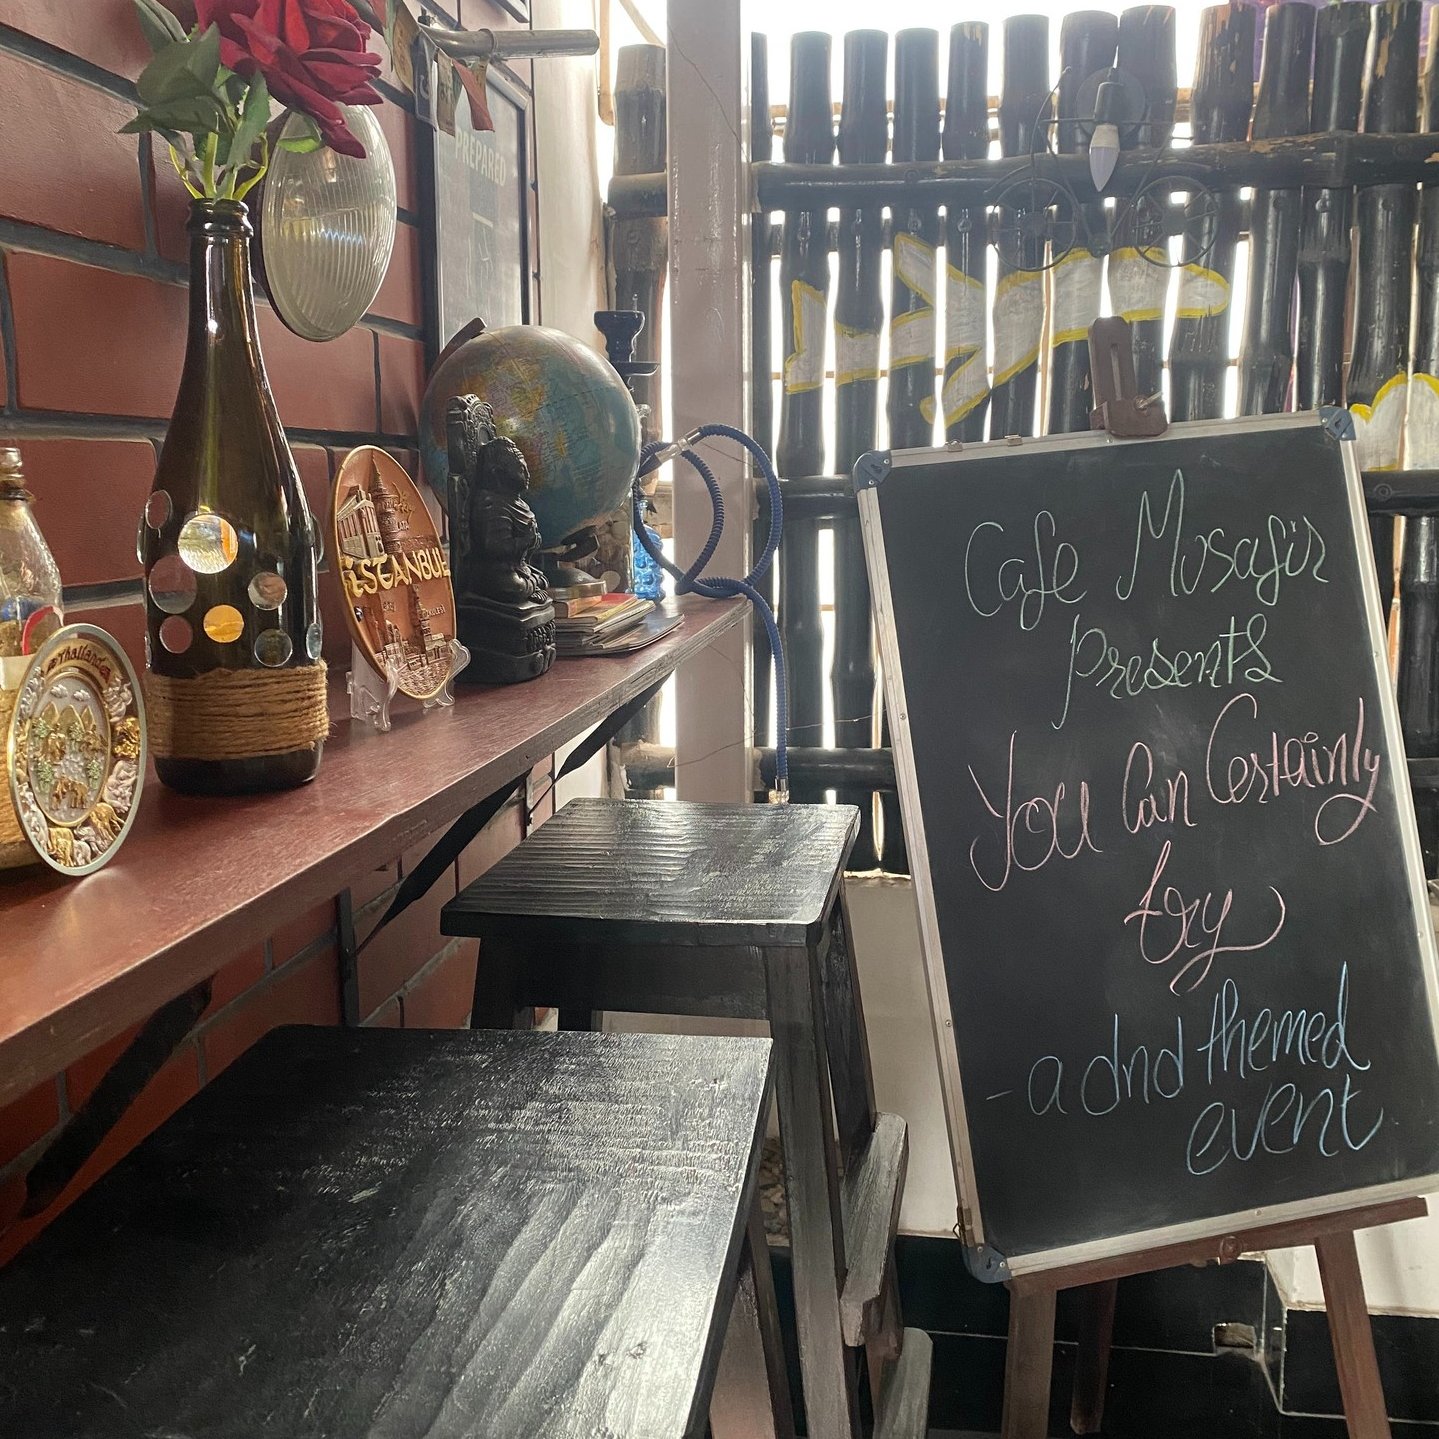 PREPARED
Thailand
iSTANBUL
Cafe Musafir
presents
You Can Certainly
try
- a dnd themed
event